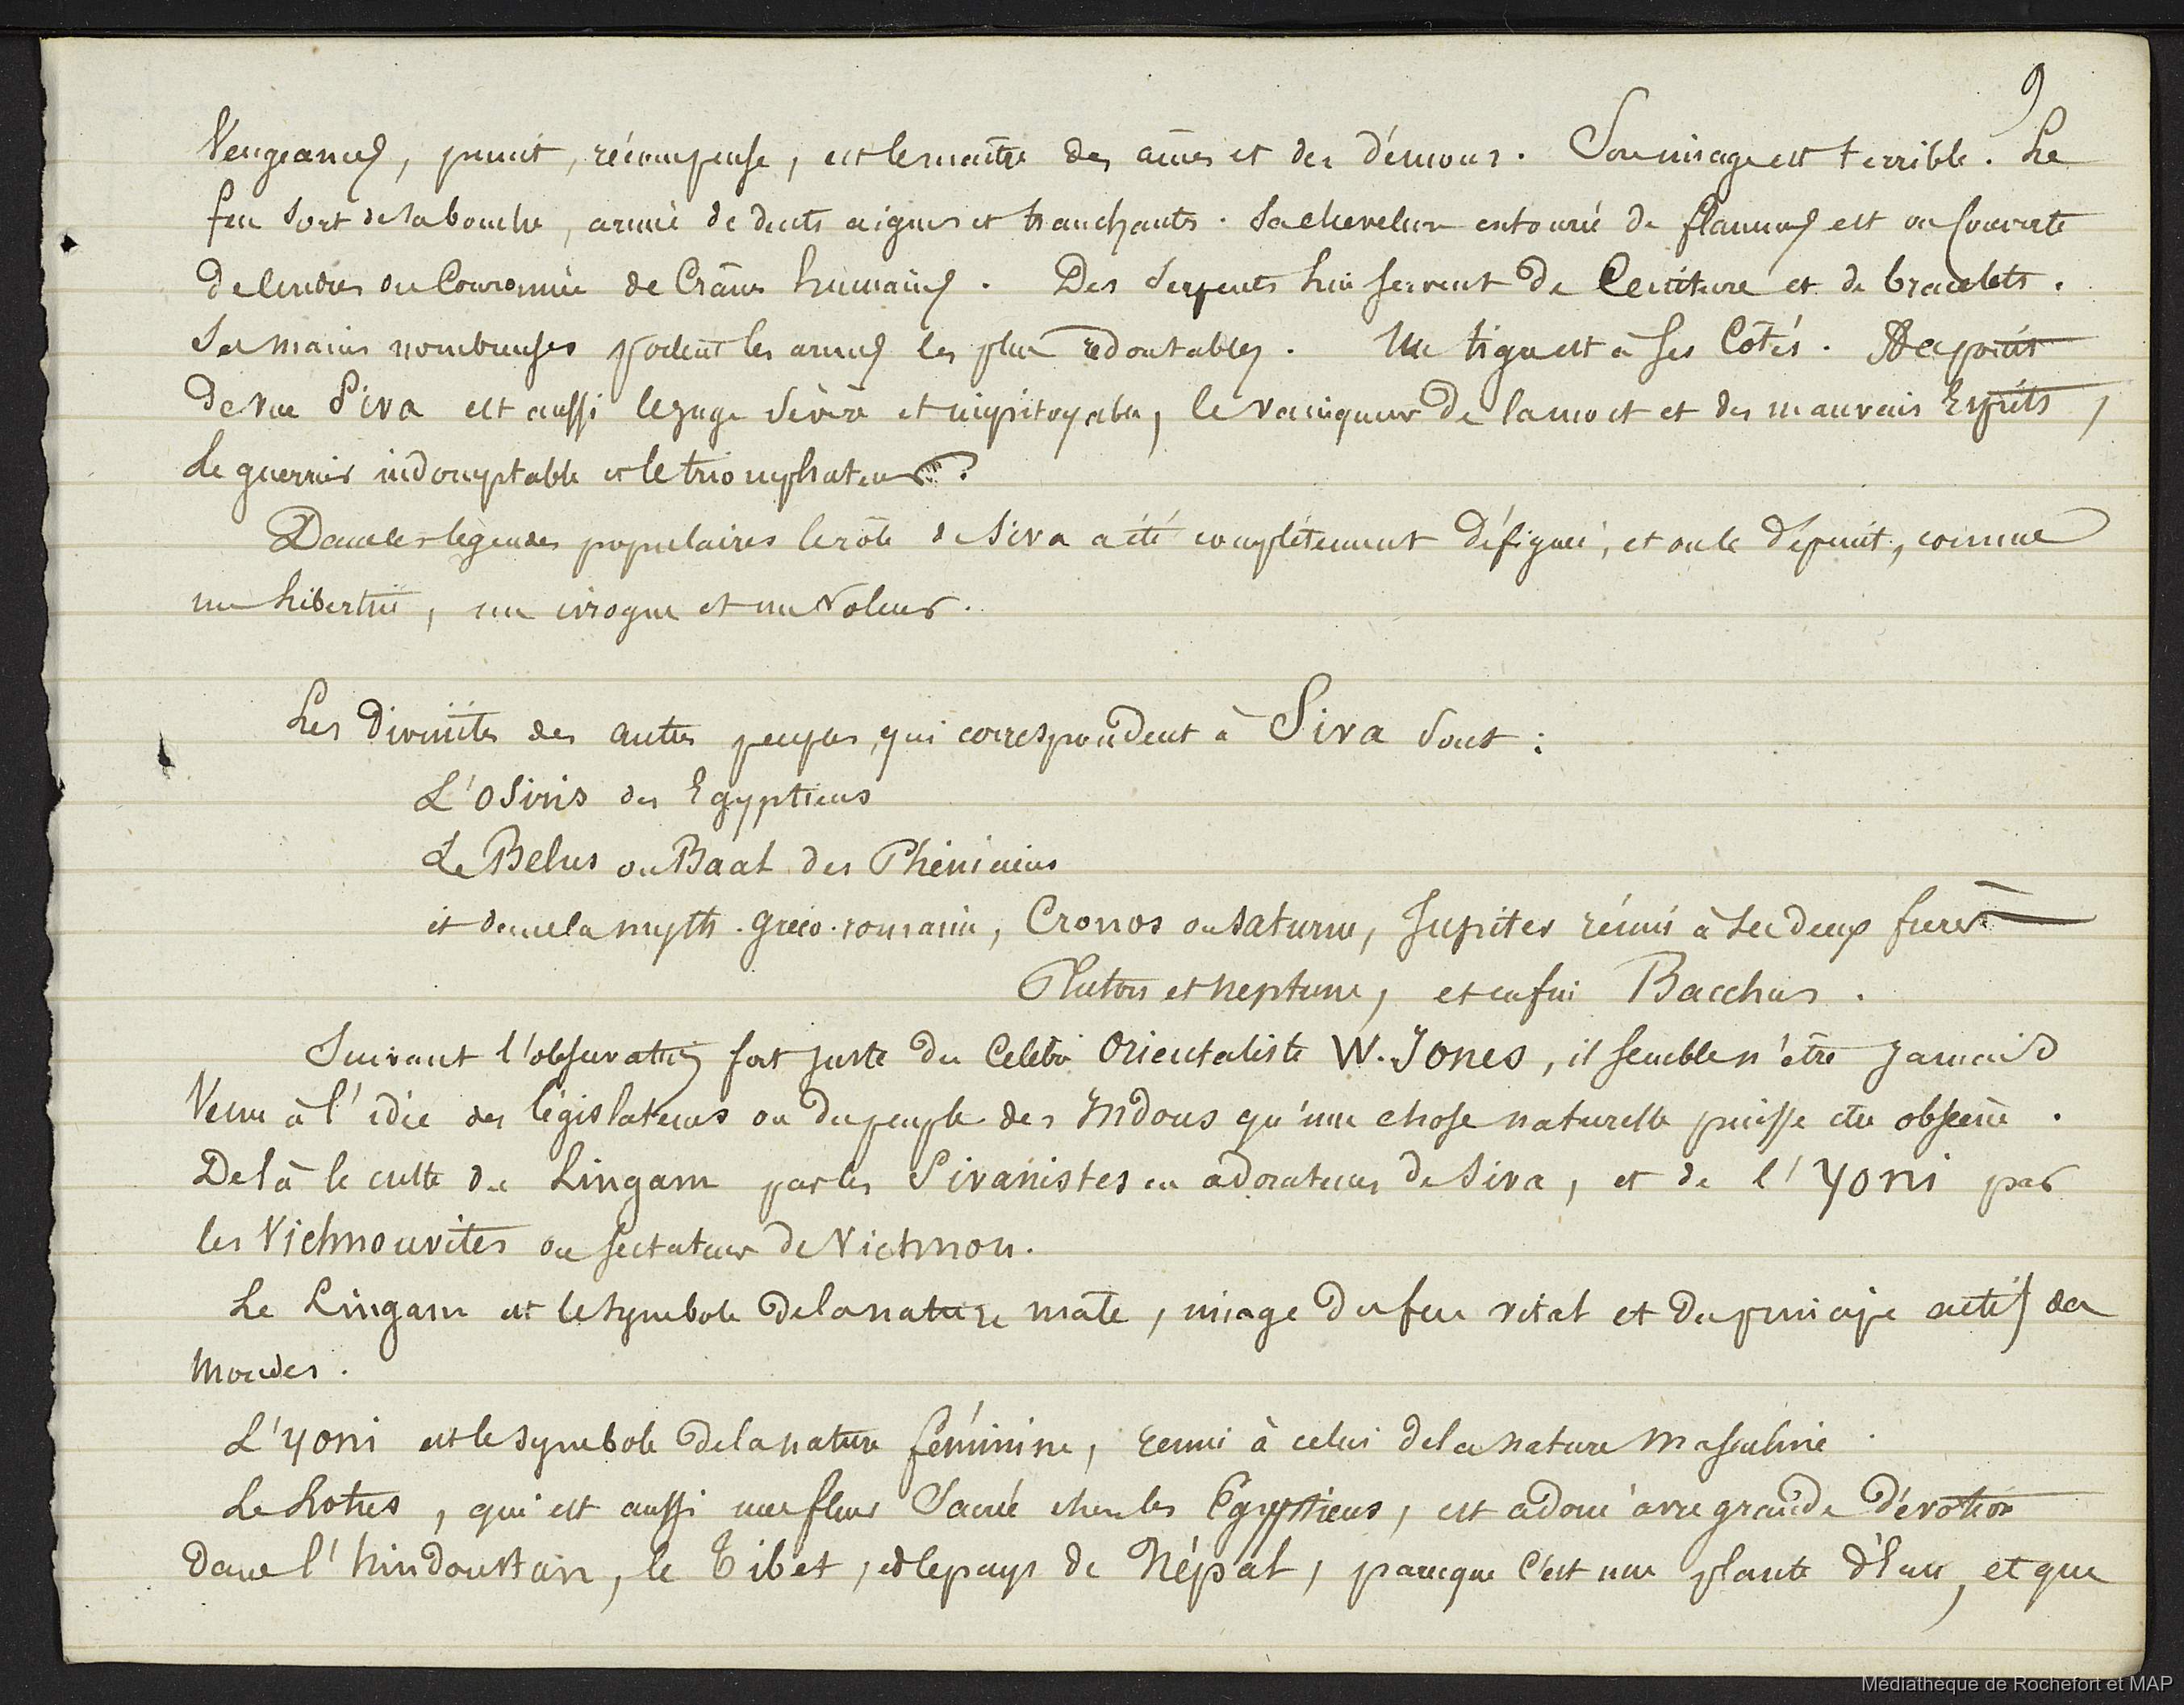 9
Vengeances, punit, récompense, est le maitre des âmes et des démons. Son image est terrible. Le
feu sort de sa bouche, armée de dents aigues et tranchants. Sa chevelure entourée de flammes est ou couverte
de cendres ou Couronnée de Crânes humains. Des Serpents lui servent de Ceinture et de bracelets.
Ses mains nombreuses portent les armes les plus redoutables. Un tigre est à ses Côtés. A ce point
de vue Siva est aussi le juge sévère et impitoyable, le vainqueur de la mort et des mauvais Esprits,
Le guerrier indomptable et le triomphateur.
Dans les légendes populaires le rôle de Siva a été complètement défiguré, et on le dépeint, comme
un libertin, un ivrogne et un voleur.
Les Divinités des autres peuples, qui correspondent à Siva sont :
L'Osiris des Egyptiens
Le Belus ou Baal des Phéniciens
et dans la myth. gréco-romaine, Cronos ou Saturne, Jupiter réuni à ses deux frères
Pluton et Neptune, et enfin Bacchus.
Suivant l'observation fort juste du Célèbre Orientaliste W. Jones, il semble n'être jamais
Venu à l'idée des législateurs ou du peuple des Indous qu'une chose naturelle puisse être obscène.
De là le culte du Lingam par les Sivanistes ou adorateurs de Siva, et de l'Yoni par
les Vichnouvites ou sectateurs de Vichnou.
Le Lingam est le symbole de la nature mâle, image du feu vital et du principe actif des
Mondes.
L'yoni est le symbole de la nature féminine, réuni à celui de la nature masculine.
Le Lotus, qui est aussi une fleur Sacrée chez les Egyptiens, est adoré avec grande dévotion
dans l'hindoustan, le Tibet, et le pays de Népal, parceque c'est une plante d'Eau, et que
Médiathèque de Rochefort et MAP